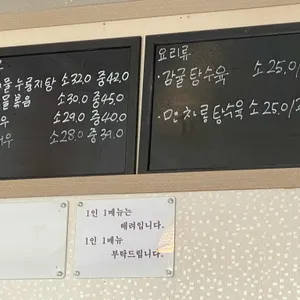 물누룽지탕 소32.0 중42.0
물볶음 소30.0 중45.0
우 소29.0 중40.0
우 소28.0 중39.0
요리류
·감귤탕수육 소25.0/
·만차롱탕수육 소25.0/
1인 1메뉴는
배려입니다.
1인 1메뉴
부탁드립니다.